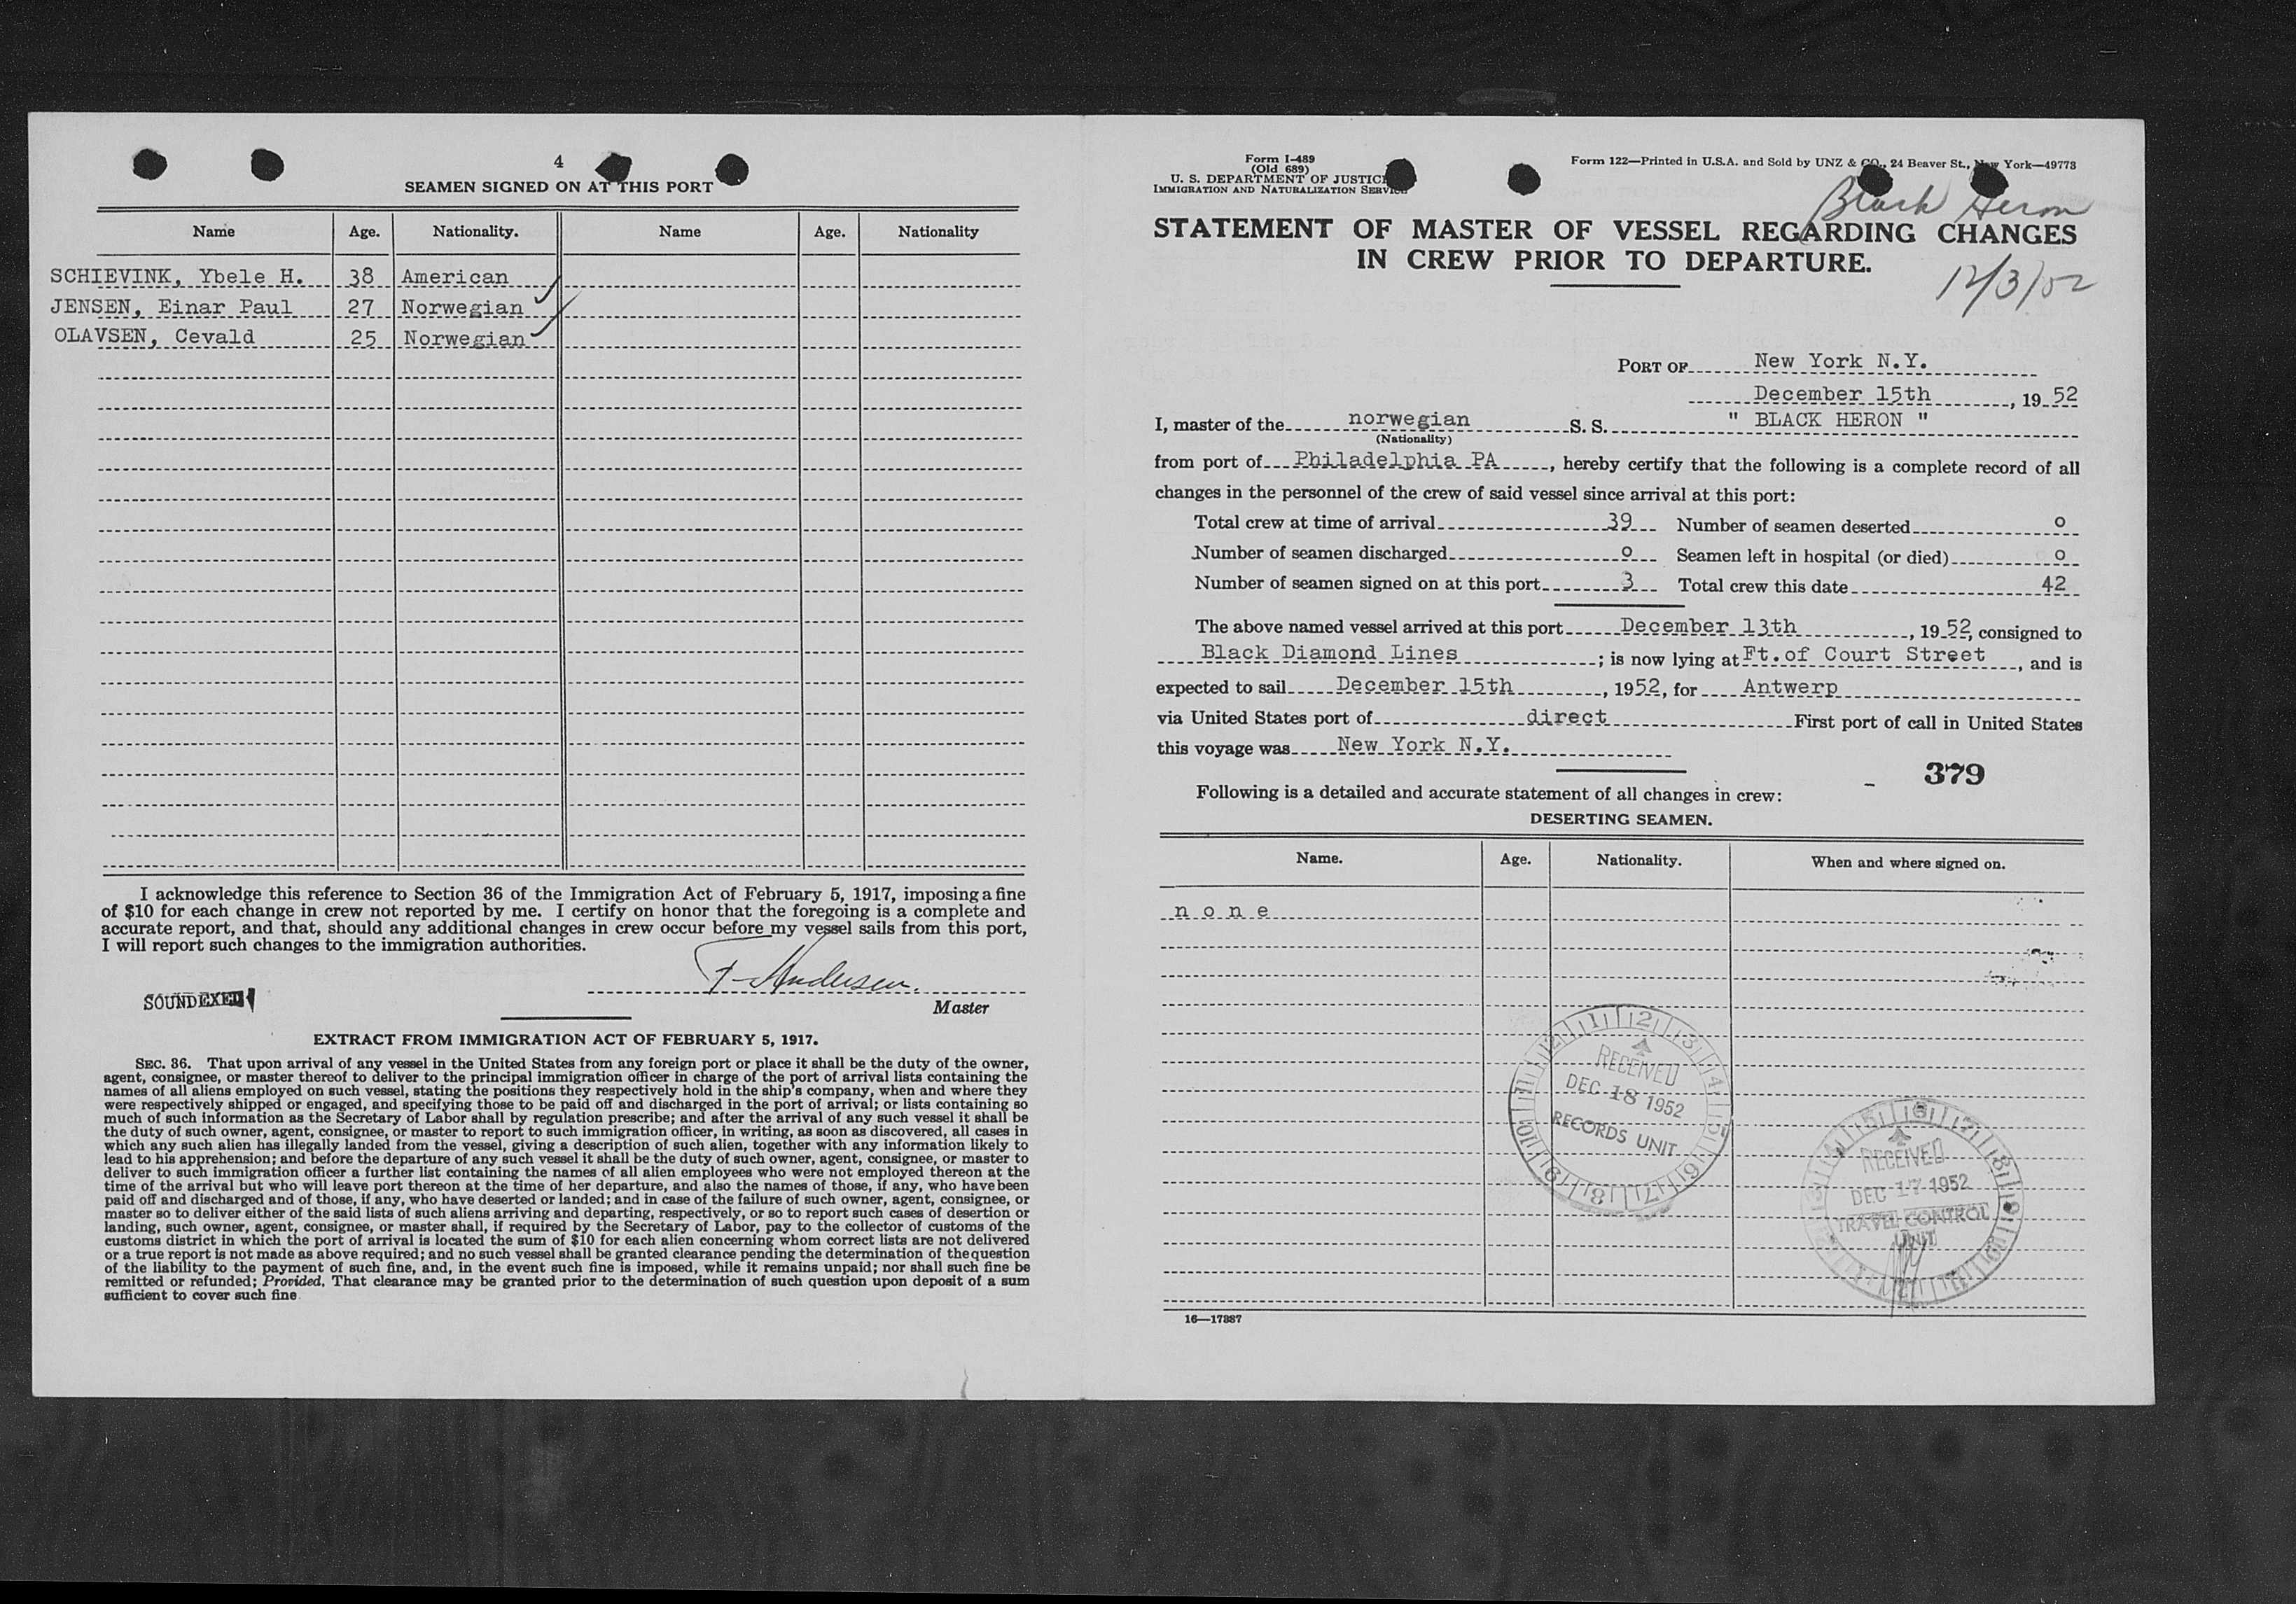 4
SEAMEN SIGNED ON AT THIS PORT
Name Age. Nationality. Name Age. Nationality
SCHIEVINK, Ybele H. 38 American
JENSEN, Einar Paul 27 Norwegian
OLAVSEN, Cevald 25 Norwegian
I acknowledge this reference to Section 36 of the Immigration Act of February 5, 1917, imposing a fine
of $10 for each change in crew not reported by me. I certify on honor that the foregoing is a complete and
accurate report, and that, should any additional changes in crew occur before my vessel sails from this port,
I will report such changes to the immigration authorities.
F. Andersen.
SOUNDEXED
Master
EXTRACT FROM IMMIGRATION ACT OF FEBRUARY 5, 1917.
SEC. 36. That upon arrival of any vessel in the United States from any foreign port or place it shall be the duty of the owner,
agent, consignee, or master thereof to deliver to the principal immigration officer in charge of the port of arrival lists containing the
names of all aliens employed on such vessel, stating the positions they respectively hold in the ship's company, when and where they
were respectively shipped or engaged, and specifying those to be paid off and discharged in the port of arrival; or lists containing so
much of such information as the Secretary of Labor shall by regulation prescribe; and after the arrival of any such vessel it shall be
the duty of such owner, agent, consignee, or master to report to such immigration officer, in writing, as soon as discovered, all cases in
which any such alien has illegally landed from the vessel, giving a description of such alien, together with any information likely to
lead to his apprehension; and before the departure of any such vessel it shall be the duty of such owner, agent, consignee, or master to
deliver to such immigration officer a further list containing the names of all alien employees who were not employed thereon at the
time of the arrival but who will leave port thereon at the time of her departure, and also the names of those, if any, who have been
paid off and discharged and of those, if any, who have deserted or landed; and in case of the failure of such owner, agent, consignee, or
master so to deliver either of the said lists of such aliens arriving and departing, respectively, or so to report such cases of desertion or
landing, such owner, agent, consignee, or master shall, if required by the Secretary of Labor, pay to the collector of customs of the
customs district in which the port of arrival is located the sum of $10 for each alien concerning whom correct lists are not delivered
or a true report is not made as above required; and no such vessel shall be granted clearance pending the determination of the question
of the liability to the payment of such fine, and, in the event such fine is imposed, while it remains unpaid; nor shall such fine be
remitted or refunded; Provided, That clearance may be granted prior to the determination of such question upon deposit of a sum
sufficient to cover such fine
Form I-489
(Old 689)
U. S. DEPARTMENT OF JUSTICE
IMMIGRATION AND NATURALIZATION SERVICE
Form 122—Printed in U.S.A. and Sold by UNZ & CO., 24 Beaver St., New York—49773
Black Heron
STATEMENT OF MASTER OF VESSEL REGARDING CHANGES
IN CREW PRIOR TO DEPARTURE.
12/3/52
PORT OF New York N.Y.
December 15th, 19 52
I, master of the norwegian S. S. " BLACK HERON "
(Nationality)
from port of Philadelphia PA, hereby certify that the following is a complete record of all
changes in the personnel of the crew of said vessel since arrival at this port:
Total crew at time of arrival 39 Number of seamen deserted o
Number of seamen discharged o Seamen left in hospital (or died) o
Number of seamen signed on at this port 3 Total crew this date 42
The above named vessel arrived at this port December 13th, 19 52, consigned to
Black Diamond Lines; is now lying at Ft. of Court Street, and is
expected to sail December 15th, 1952, for Antwerp
via United States port of direct First port of call in United States
this voyage was New York N.Y.
379
Following is a detailed and accurate statement of all changes in crew:
DESERTING SEAMEN.
Name. Age. Nationality. When and where signed on.
n o n e
RECEIVED
DEC 18 1952
RECORDS UNIT
RECEIVED
DEC 17 1952
TRAVEL CONTROL
UNIT
16—17887